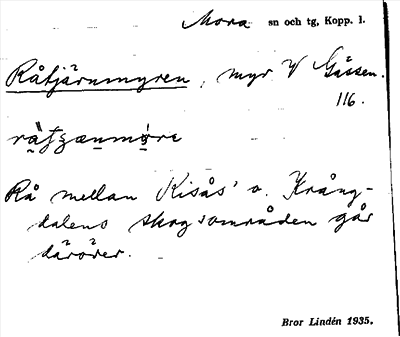 Mora sn och tg, Kopp. l.
Råtjärnmyren, myr V Gåssen.
116.
Rå mellan Kisås' o. Krång-
dalens skogsområden går
däröver.
Bror Lindén 1935.